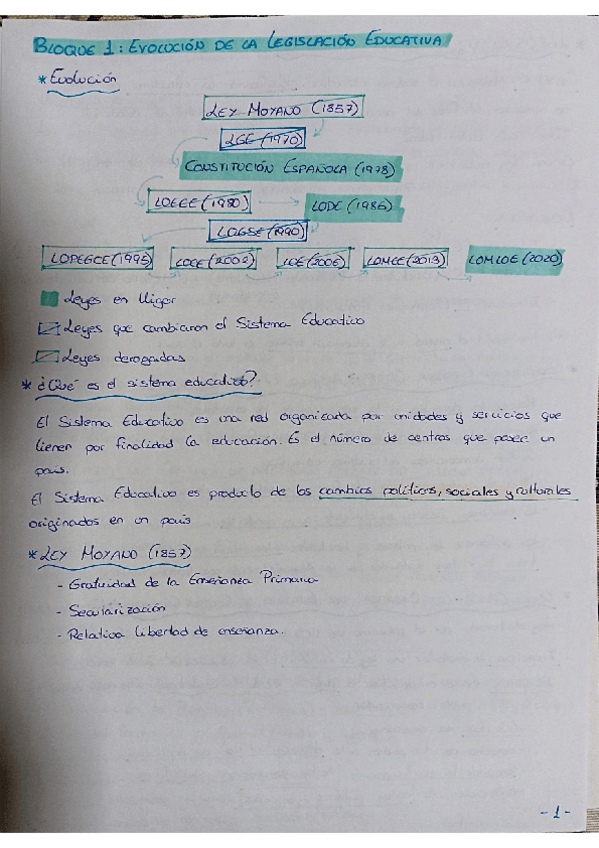 BLOQUE 1: EVOLUCIÓN DE LA LEGISLACIÓN EDUCATIVA
* Evolución
LEY MOYANO (1857)
LGE (1970)
CONSTITUCIÓN ESPAÑOLA (1978)
LOECE (1980) LODE (1985)
LOGSE (1990)
LOPEGCE (1995) LOCE (2002) LOE (2006) LOMCE (2013) LOMLOE (2020)
Leyes en Vigor
Leyes que cambiaron el Sistema Educativo
Leyes derogadas
* ¿Qué es el sistema educativo?
El Sistema Educativo es una red organizada por unidades y servicios que
tienen por finalidad la educación. Es el número de centros que posee un
país.
El Sistema Educativo es producto de los cambios políticos, sociales y culturales
originados en un país
* LEY MOYANO (1857)
- Gratuidad de la Enseñanza Primaria
- Secularización
- Relativa libertad de enseñanza.
- 1 -